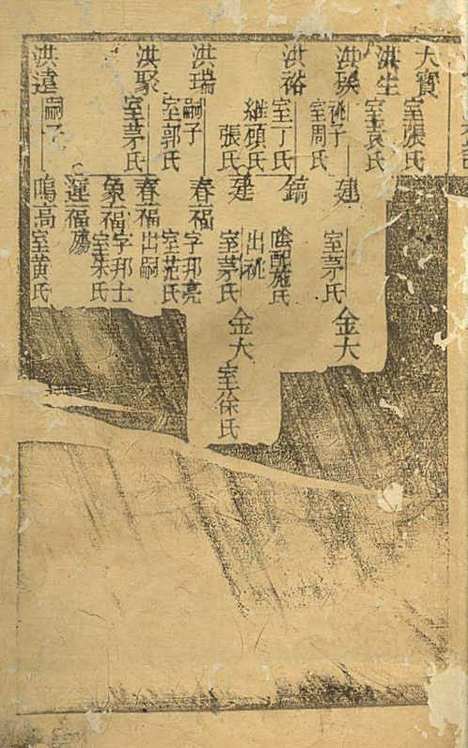 大寶 室張氏
洪生 室袁氏
洪 祧子 室周氏
建 室茅氏 金大
洪裕 室丁氏 繼顧氏 張氏
鎬 陰配施氏
建 出祧 室茅氏 金大 室徐氏
洪瑞 嗣子 室郭氏
春福 字邦亮 室范氏
洪聚 室茅氏
春福 出嗣
象福 字邦士 室朱氏
運福 殤
洪逵 嗣子
鳴高 室黄氏